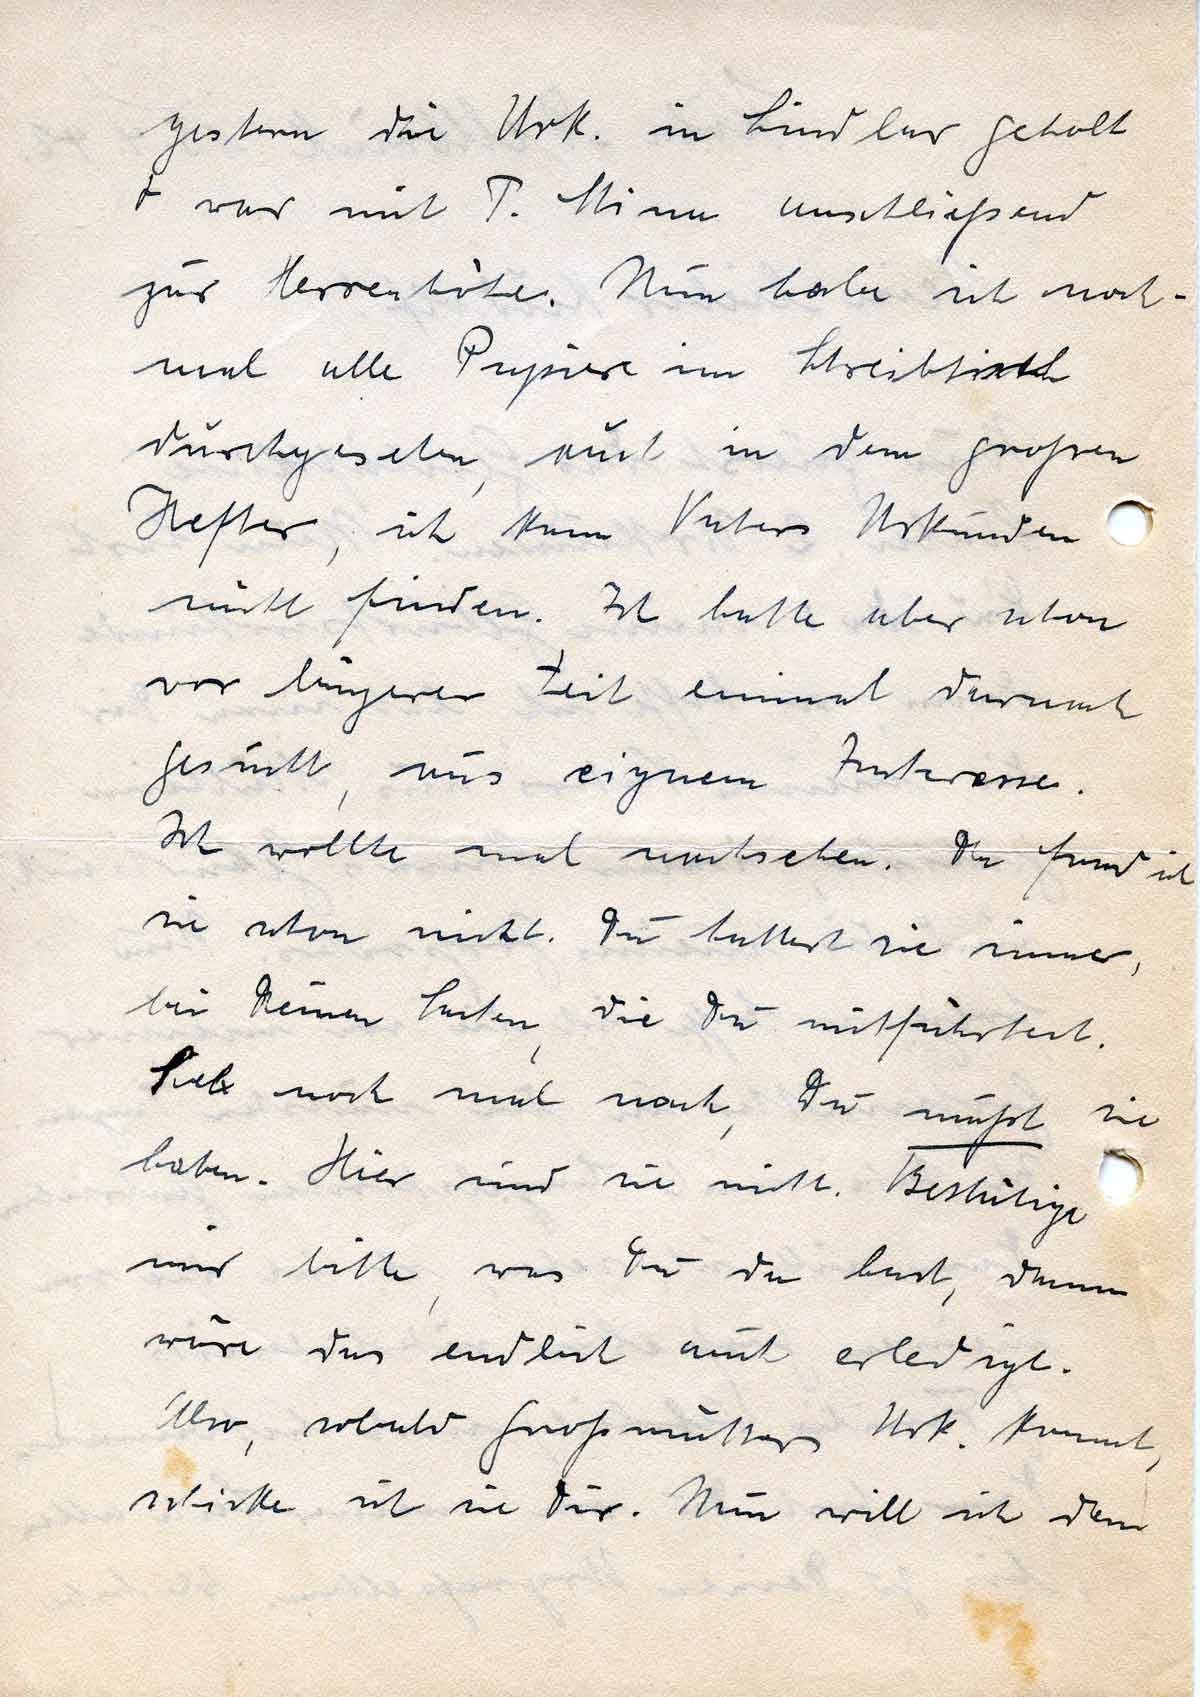 gestern die Urk. in Lindlar geholt
+ war mit T. Minna anschließend
zur Herrenhöhe. Nun habe ich noch-
mal alle Papiere im Schreibtisch
durchgesehen, auch in dem großen
Hefter, ich kann Vaters Urkunden
nicht finden. Ich hatte aber schon
vor längerer Zeit einmal danach
gesucht, aus eignem Interesse.
Ich wollte mal nachsehen. Da fand ich
sie schon nicht. Du hattest sie immer,
bei Deinen Sachen, die Du mitführtest.
Seh noch mal nach, Du mußt sie
haben. Hier sind sie nicht. Bestätige
mir bitte, was Du da hast, dann
wäre das endlich auch erledigt.
Also, sobald Großmutters Urk. kommt,
schicke ich sie Dir. Nun will ich dem